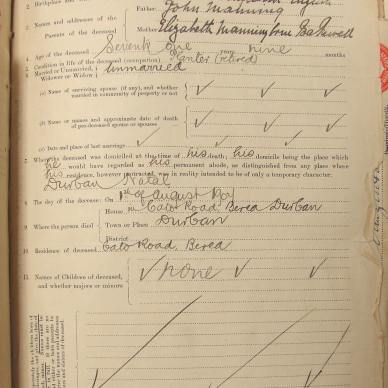 2. Birthplace and
3. Names and addresses of the Parents of the deceased
Father: John Manning
Mother: Elizabeth Manning born Bakewell
4. Age of the deceased Seventy One years nine months
5. Condition in life of the deceased (occupation) Planter (retired)
Married or Unmarried,
Widower or Widow Unmarried
(a) Name of surviving spouse (if any), and whether
married in community of property or not
(b) Name or names and approximate date of death
of pre-deceased spouse or spouses
(c) Date and place of last marriage
7. Where the deceased was domiciled at the time of his death, his domicile being the place which
he would have regarded as his permanent abode, as distinguished from any place where
his residence, however protracted, was in reality intended to be only of a temporary character.
Durban Natal
8. The day of the decease: On 1st of August
House Cato Road, Berea Durban
9. Where the person died Town or Place Durban
District
10. Residence of deceased Cato Road, Berea
11. Names of Children of deceased,
and whether majors or minors none